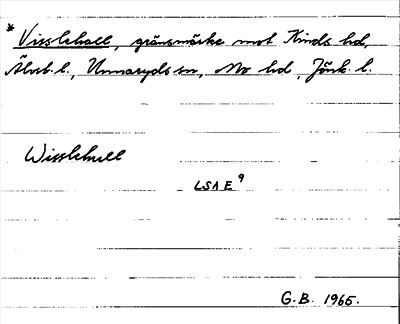 * Visslehall, gränsmärke mot Kinds hd,
Älvsb. l., Unnaryds sn, Mo hd, Jönk. l.
Wisslehull
LSA E9
G.B. 1965.